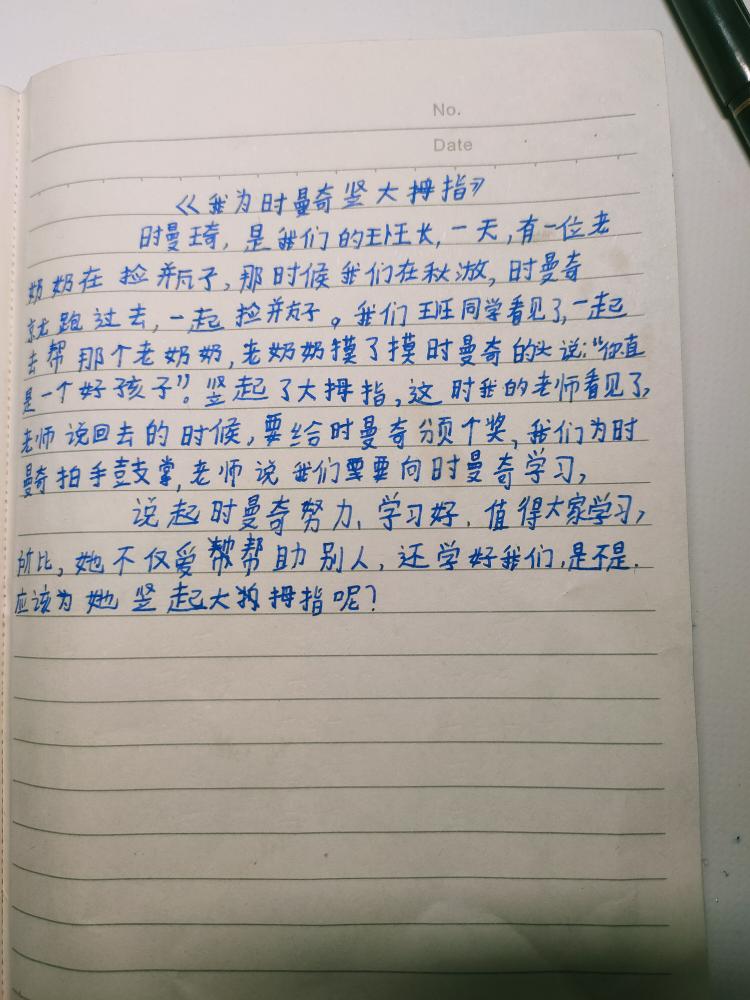 No.
Date
《我为时曼奇竖大拇指》
时曼琦，是我们的班班长，一天，有一位老
奶奶在捡并瓦子，那时候我们在秋游，时曼奇
就跑过去，一起捡并子。我们班同学看见了，一起
去帮那个老奶奶，老奶奶摸了摸时曼奇的头说：“你真
是一个好孩子”。竖起了大拇指，这时我的老师看见了，
老师说回去的时候，要给时曼奇颁个奖，我们为时
曼奇拍手鼓掌，老师说我们要要向时曼奇学习，
说起时曼奇努力、学习好、值得大家学习，
所比，她不仅爱帮帮助别人，还学好我们，是不是
应该为她竖起大拇指呢？